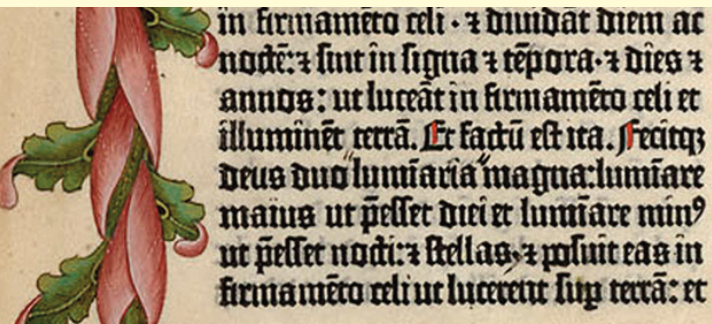 in firmamēto celi · ⁊ diuidāt diem ac
noctē: ⁊ sint in signa ⁊ tēpora · ⁊ dies ⁊
annos: ut luceāt in firmamēto celi et
illuminēt terrā. Et factū est ita. Fecitqꝫ
deus duo "lumīaria" magna: lumīare
maius ut p̄esset diei et lumīare minꝰ
ut p̄esset nocti: ⁊ stellas · ⁊ posuit eas in
firmamēto celi ut lucerent suꝑ terrā: et